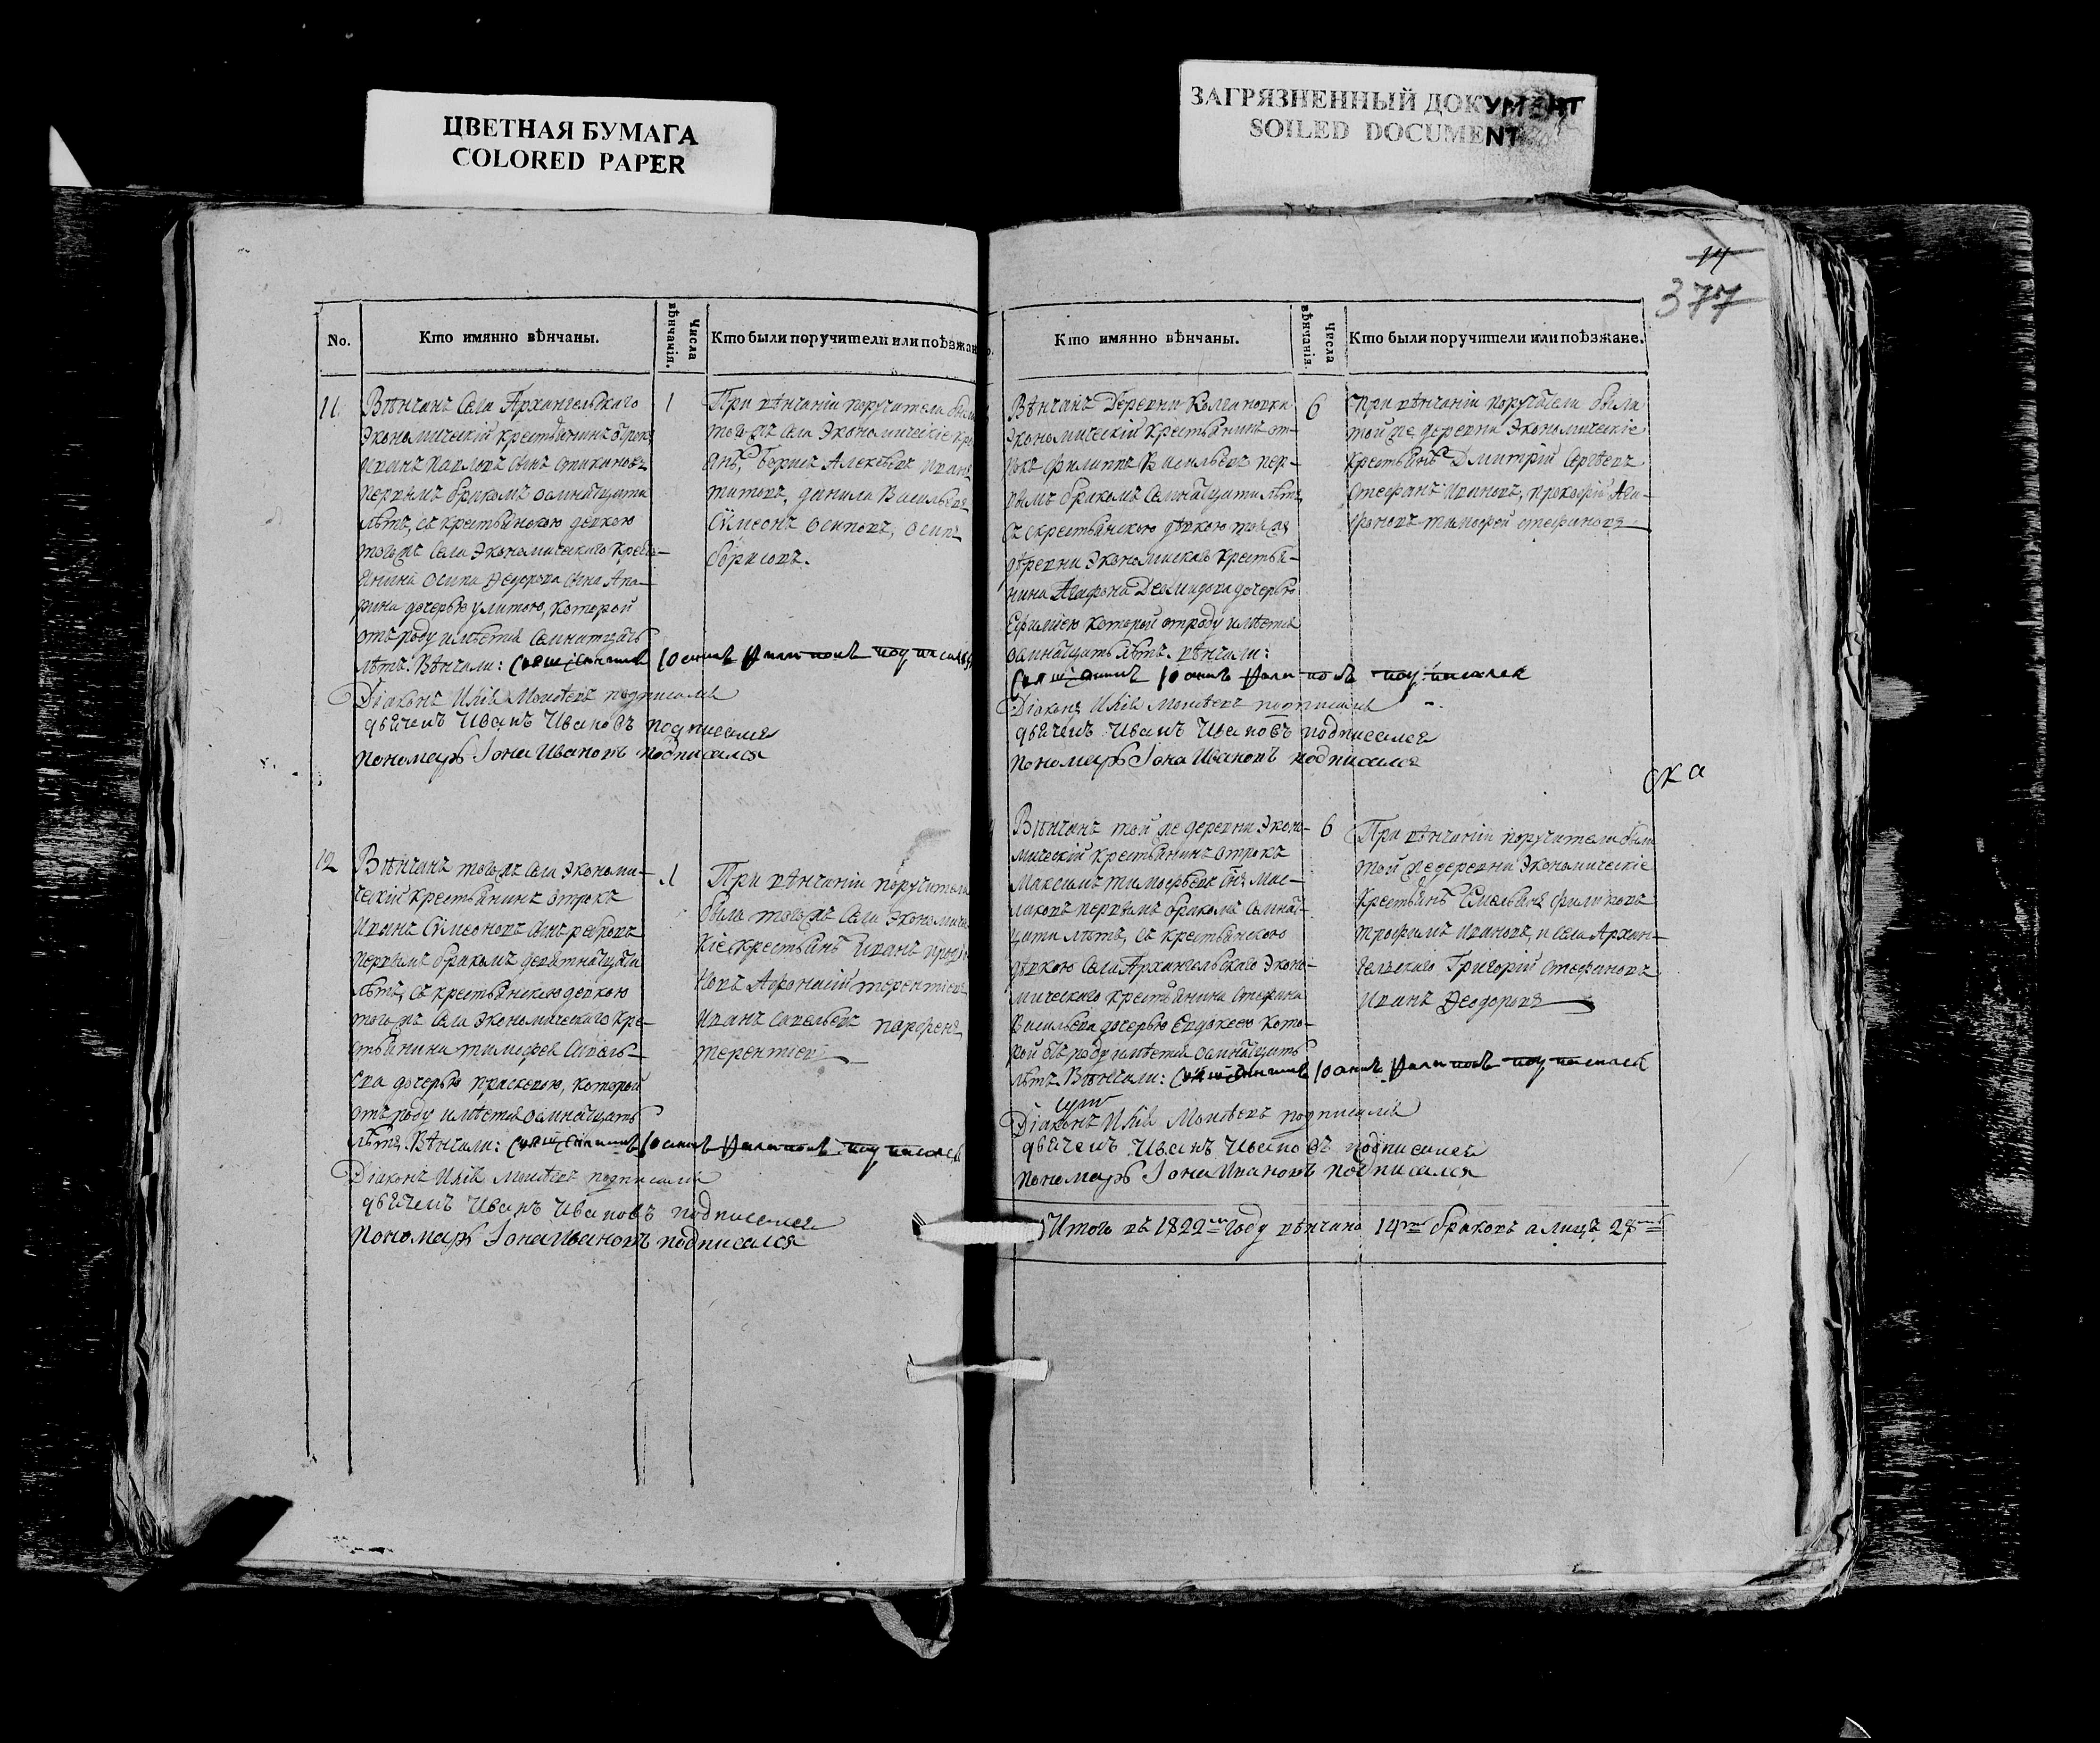 ЦВЕТНАЯ БУМАГА
COLORED PAPER
ЗАГРЯЗНЕННЫЙ ДОКУМЕНТ
SOILED DOCUMENT
14
377
No.
Кто имянно вѣнчаны.
Числа вѣнчанія.
Кто были поручители или поѣзжан
11
Вѣнчанъ Села Архангельскаго
Экономическій крестьянинъ отрокъ
Иванъ Павловъ сынъ
первымъ бракомъ осмнатцати
лѣтъ, съ крестьянскою девкою
тогожъ Села Экономическаго Кресть-
янина Осипа Федорова сына Ага-
фина дочерью улитою, которой
отъ роду имѣетъ Семнатцать
лѣтъ. Вѣнчали: Священникъ Іоаннъ Филиповъ подписался
Діаконъ Илія Моисѣевъ подписался
дьячекъ Иванъ Ивановъ подписался
пономарь Іона Ивановъ подписался
1
При вѣнчаніи поручители были
тогожъ Села Экономическіе кре
янѣ, Борисъ Алексѣевъ Иванъ
титовъ, данила Васильевъ
Сѵмеонъ Осиповъ, Осипъ
борисовъ.
12
Вѣнчанъ тогожъ Села Экономи-
ческій крестьянинъ отрокъ
Иванъ Сѵмеоновъ сынъ ребровъ
первымъ бракомъ девятнатцати
лѣтъ, съ крестьянскою девкою
тогожъ Села Экономическаго Кре-
стьянина тимофея Савель-
ева дочерью праскевою, которой
отъ роду имѣетъ осмнатцать
лѣтъ. Вѣнчали: Священникъ Іоаннъ Филиповъ подписался
Діаконъ Илія Моисѣевъ подписался
дьячекъ Иванъ Ивановъ подписался
пономарь Іона Ивановъ подписался
1
При вѣнчаніи поручители
были тогожъ Села Экономичес
кіе крестьянѣ Иванъ
новъ Афонасій терентіевъ
Иванъ Савельевъ парфенъ
терентіев
Кто имянно вѣнчаны.
Числа вѣнчанія.
Кто были поручители или поѣзжане.
Вѣнчанъ Деревни Колчановки
Экономическій Крестьянинъ от-
рокъ филиппъ Васильевъ пер-
вымъ бракомъ Семнатцати лѣтъ
съ крестьянскою дѣвкою той же
дѣревни Экономическаго Крестья-
нина Агафона Демидова дочерью
Ефиміею которой отроду имѣетъ
осмнатцать лѣтъ. вѣнчали:
Священникъ Іоаннъ Филиповъ подписался
Діаконъ Илія Моисѣевъ подписался
дьячекъ Иванъ Ивановъ подписался
пономарь Іона Ивановъ подписался
6
При вѣнчаніи поручители были
той же деревни Экономическіе
крестьянѣ Дмитрій Сергѣевъ
Стефанъ Ивановъ, прокофій Ага-
фоновъ тимофей стефановъ
ска
Вѣнчанъ той же деревни Эконо-
мическій крестьянинъ отрокъ
Максимъ тимофѣевъ снъ Мас-
ликовъ первымъ бракомъ Семнат-
цати лѣтъ, съ крестьянскою
дѣвкою Села Архангельскаго Эконо-
мическаго крестьянина Стефана
Васильева дочерью Евдокеею Кото-
рой отъ роду имѣетъ осмнатцать
лѣтъ. Вѣнчали: Священникъ Іоаннъ Филиповъ подписался
Діаконъ Илія Моисѣевъ подписался
дьячекъ Иванъ Ивановъ подписался
пономарь Іона Ивановъ подписался
6
При вѣнчаніи поручители были
той же деревни Экономическіе
Крестьянѣ Емельянъ филиповъ
трофимъ Ивановъ, и Села Архан-
гельскаго Григорій Стефановъ
Иванъ Феодоровъ
Итого въ 1822мъ году вѣнчано 14ть браковъ а лицъ 28мь